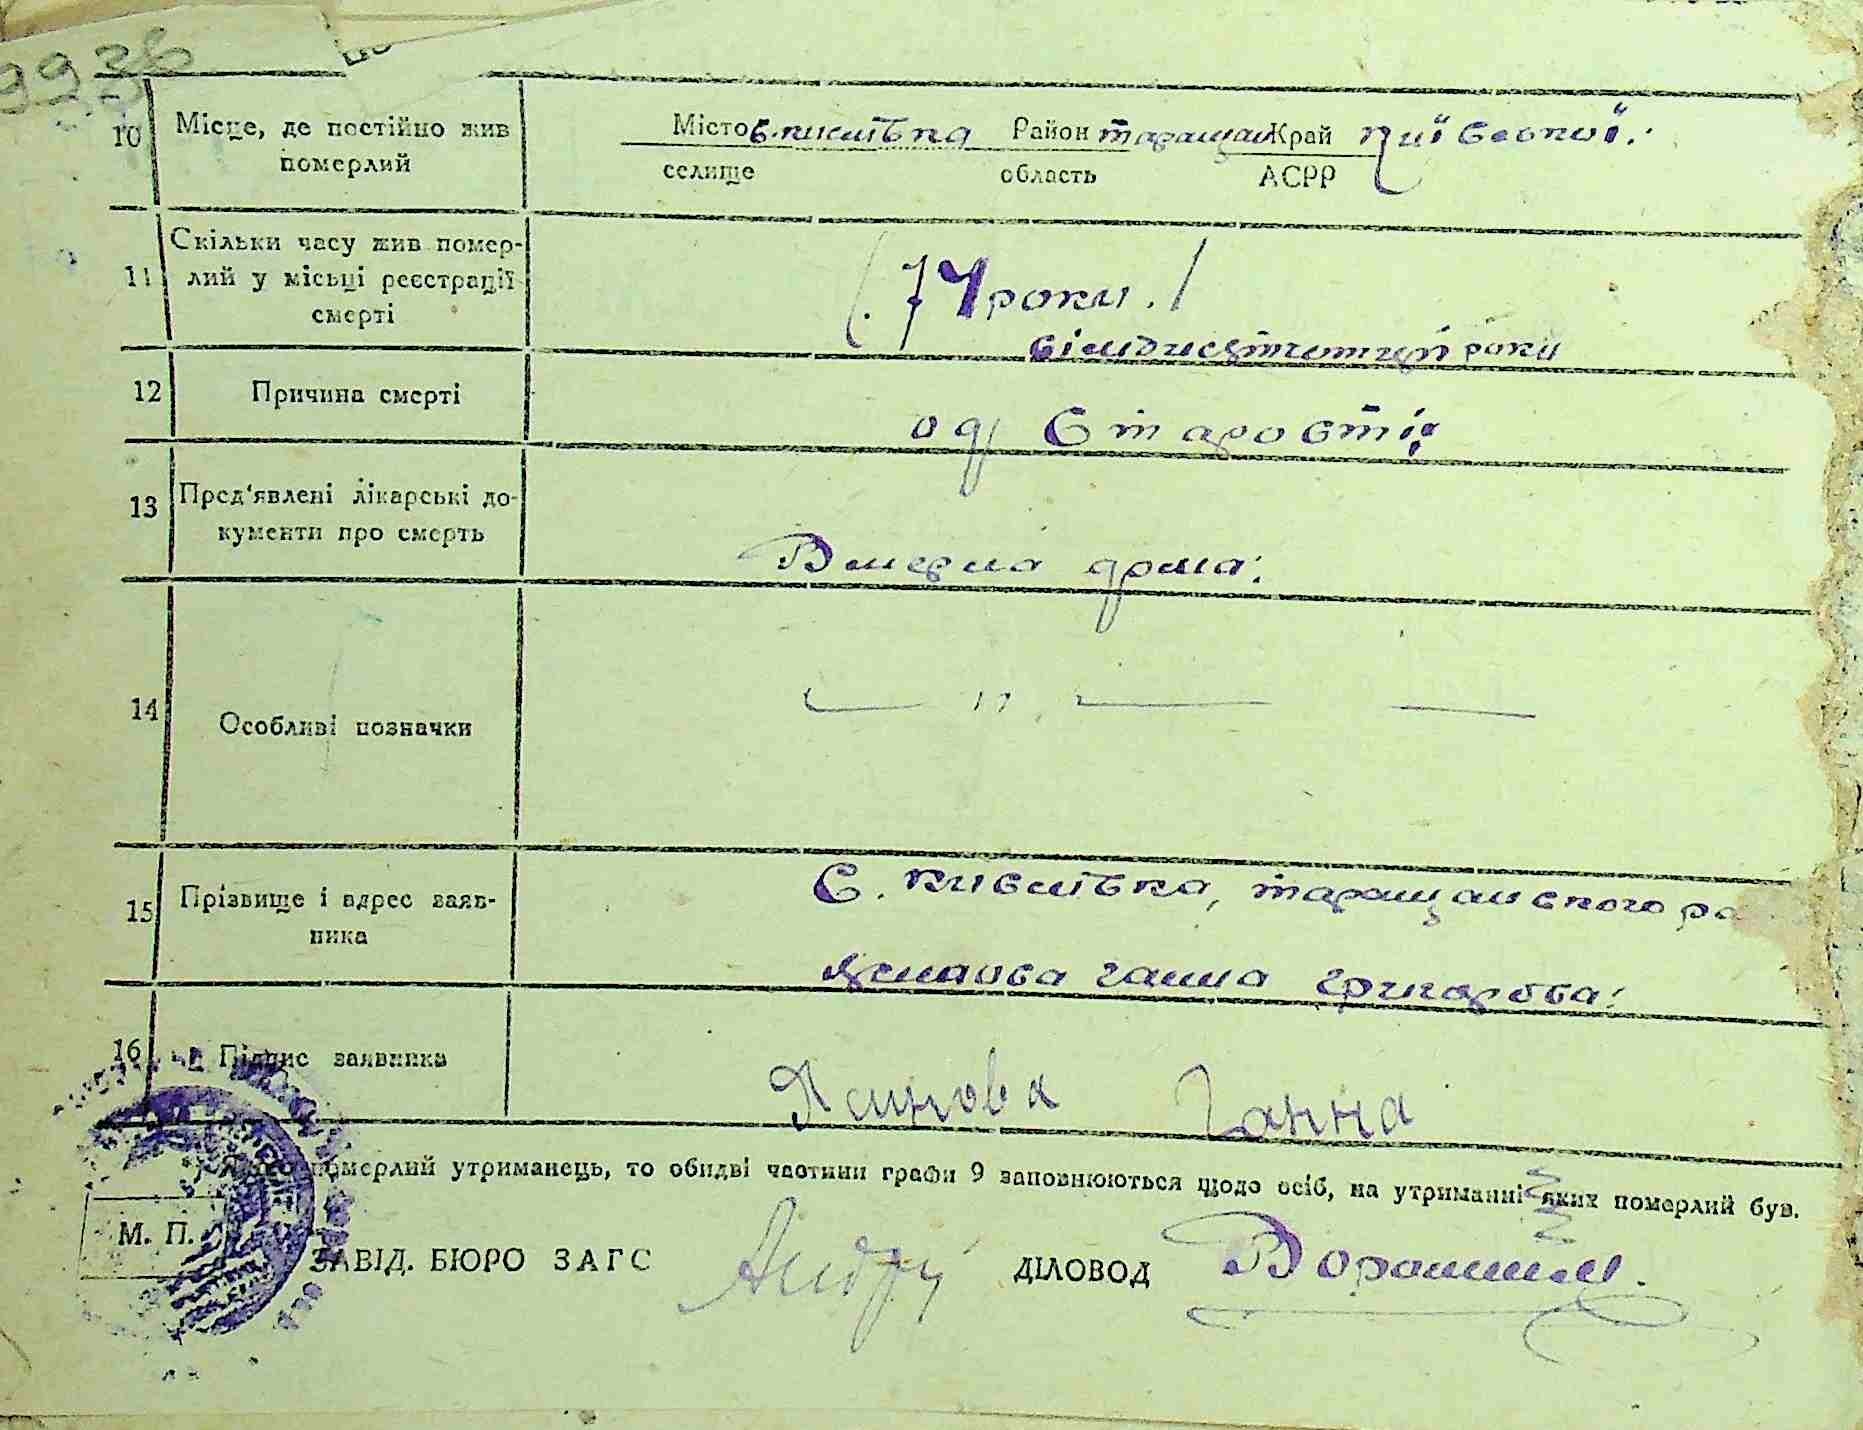 9936
10 Місце, де постійно жив Місто с. Кислівка Район таращан Край Київської.
померлий селище область АСРР
Скільки часу жив помер-
11 лий у місьці реєстрації (74 роки.)
смерті сімдисятчотирі роки
12 Причина смерті од старості
13 Пред'явлені лікарські до-
кументи про смерть Вмерла дома.
14 Особливі позначки — " — —
15 Прізвище і адрес заяв- С. Кислівка, таращанского ра
ника Ясинова ганна григорова.
16 Підпис заявника Ясинова Ганна
померлий утриманець, то обидві частини графи 9 заповнюються щодо осіб, на утриманні яких померлий був.
М. П.
ЗАВІД. БЮРО ЗАГС ДІЛОВОД